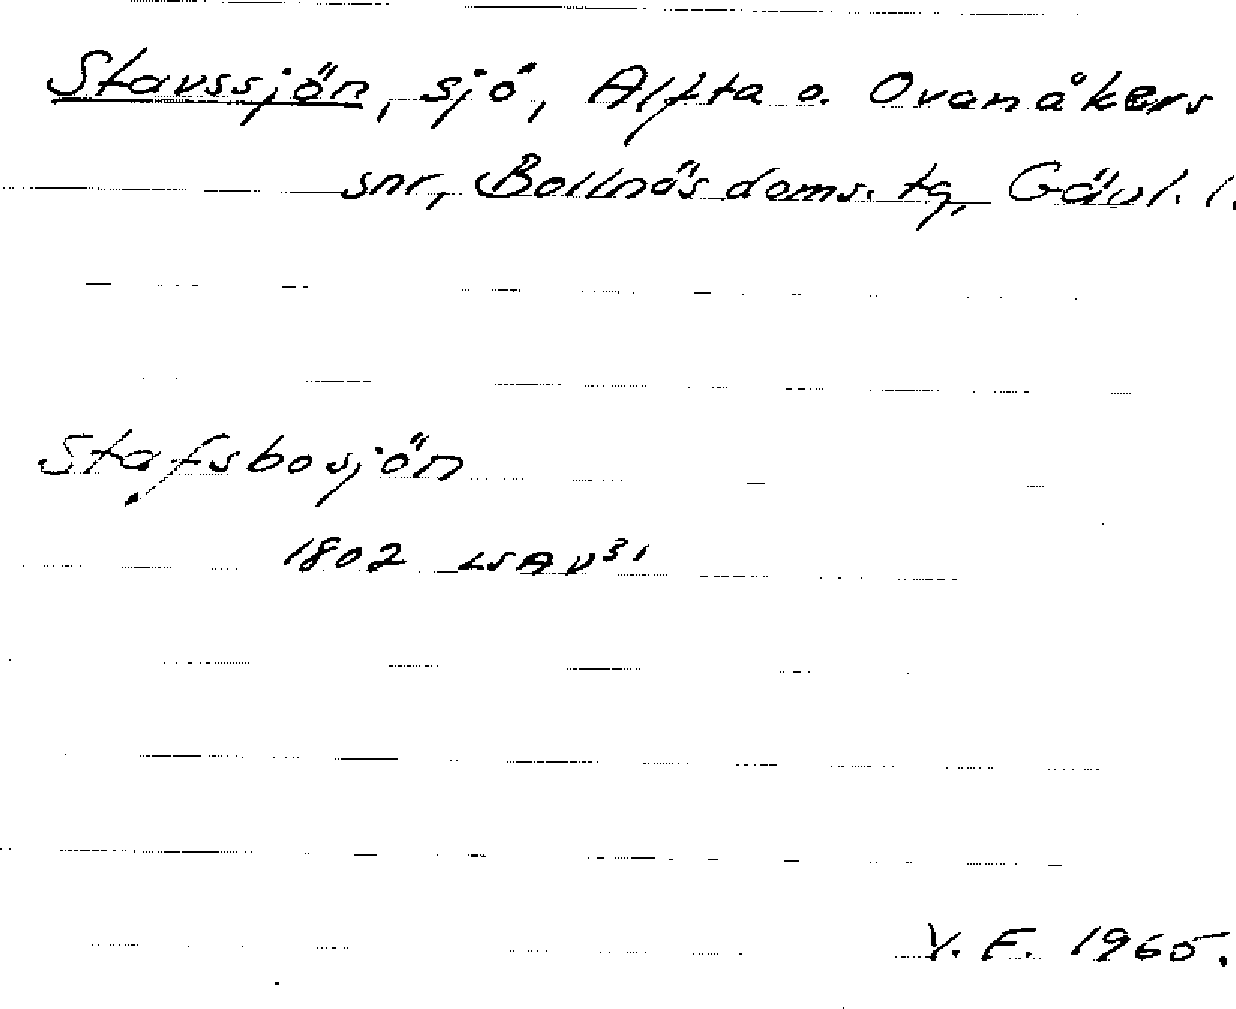 Stavssjön, sjö, Alfta o. Ovanåkers
snr, Bollnäs doms. tg, Gävl. l.
Stafsbosjön
1802 LSA V³¹
V. E. 1965.